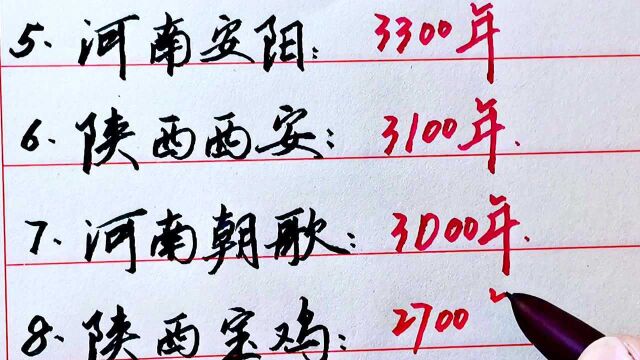 5. 河南安阳: 3300年
6. 陕西西安: 3100年.
7. 河南朝歌: 3000年.
8. 陕西宝鸡: 2700